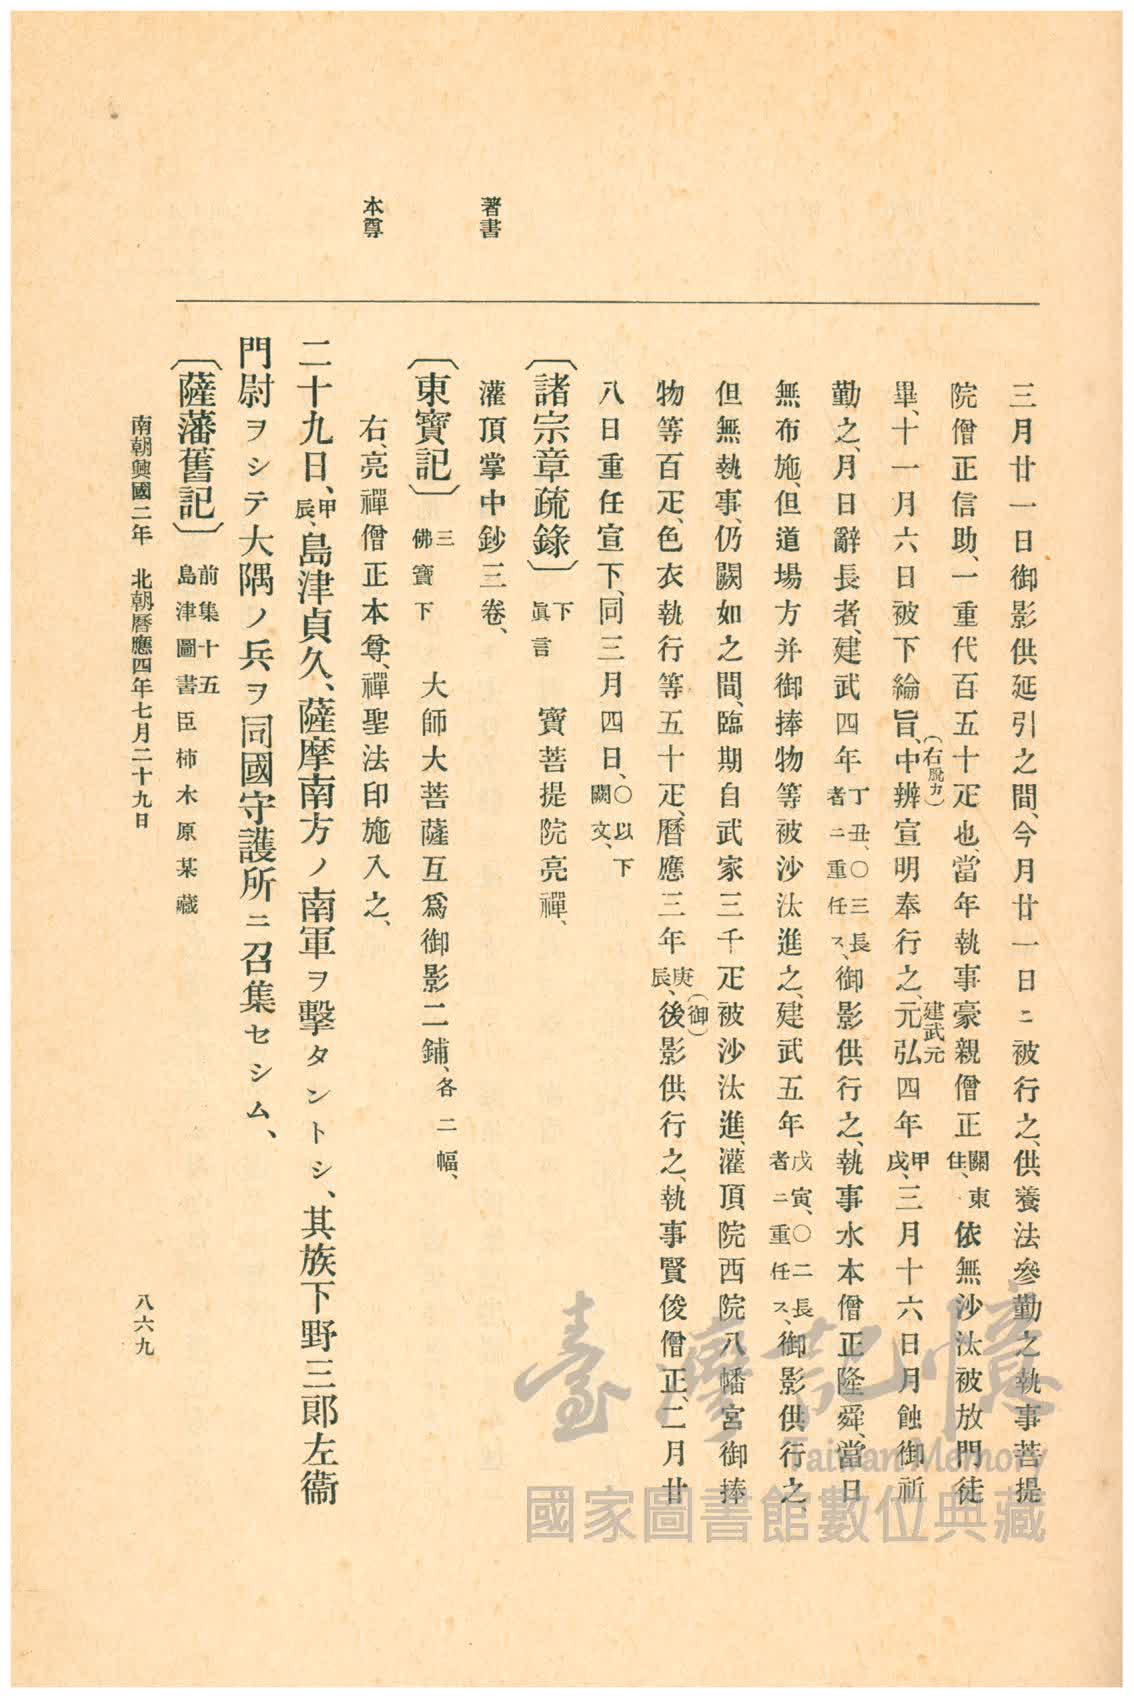 三月廿一日御影供延引之間、今月廿一日ニ被行之、供養法參勤之執事菩提
院僧正信助、一重代百五十疋也、當年執事豪親僧正關東住、依無沙汰被放門徒
畢、十一月六日被下綸旨、中辨宣明奉行之、元弘四年甲戌、三月十六日月蝕御祈
(右脫カ)
建武元
勤之、月日辭長者、建武四年丁丑、〇三長者ニ重任ス、御影供行之、執事水本僧正隆舜、當日
無布施、但道場方并御捧物等被沙汰進之、建武五年戊寅、〇二長者ニ重任ス、御影供行之、
但無執事、仍闕如之間、臨期自武家三千疋被沙汰進、灌頂院西院八幡宮御捧
物等百疋、色衣執行等五十疋、曆應三年庚辰、後影供行之、執事賢俊僧正、二月廿
(御)
八日重任宣下、同三月四日、〇以下闕文、
〔諸宗章疏錄〕下眞言 寶菩提院亮禪、
著書
灌頂掌中鈔三卷、
〔東寶記〕三佛寶下 大師大菩薩互爲御影二鋪、各二幅、
本尊
右、亮禪僧正本尊、禪聖法印施入之、
二十九日、甲辰、島津貞久、薩摩南方ノ南軍ヲ擊タントシ、其族下野三郎左衞
門尉ヲシテ大隅ノ兵ヲ同國守護所ニ召集セシム、
〔薩藩舊記〕前集十五島津圖書臣柿木原某藏
南朝興國二年 北朝曆應四年七月二十九日
八六九
臺灣記憶
Taiwan Memory
國家圖書館數位典藏